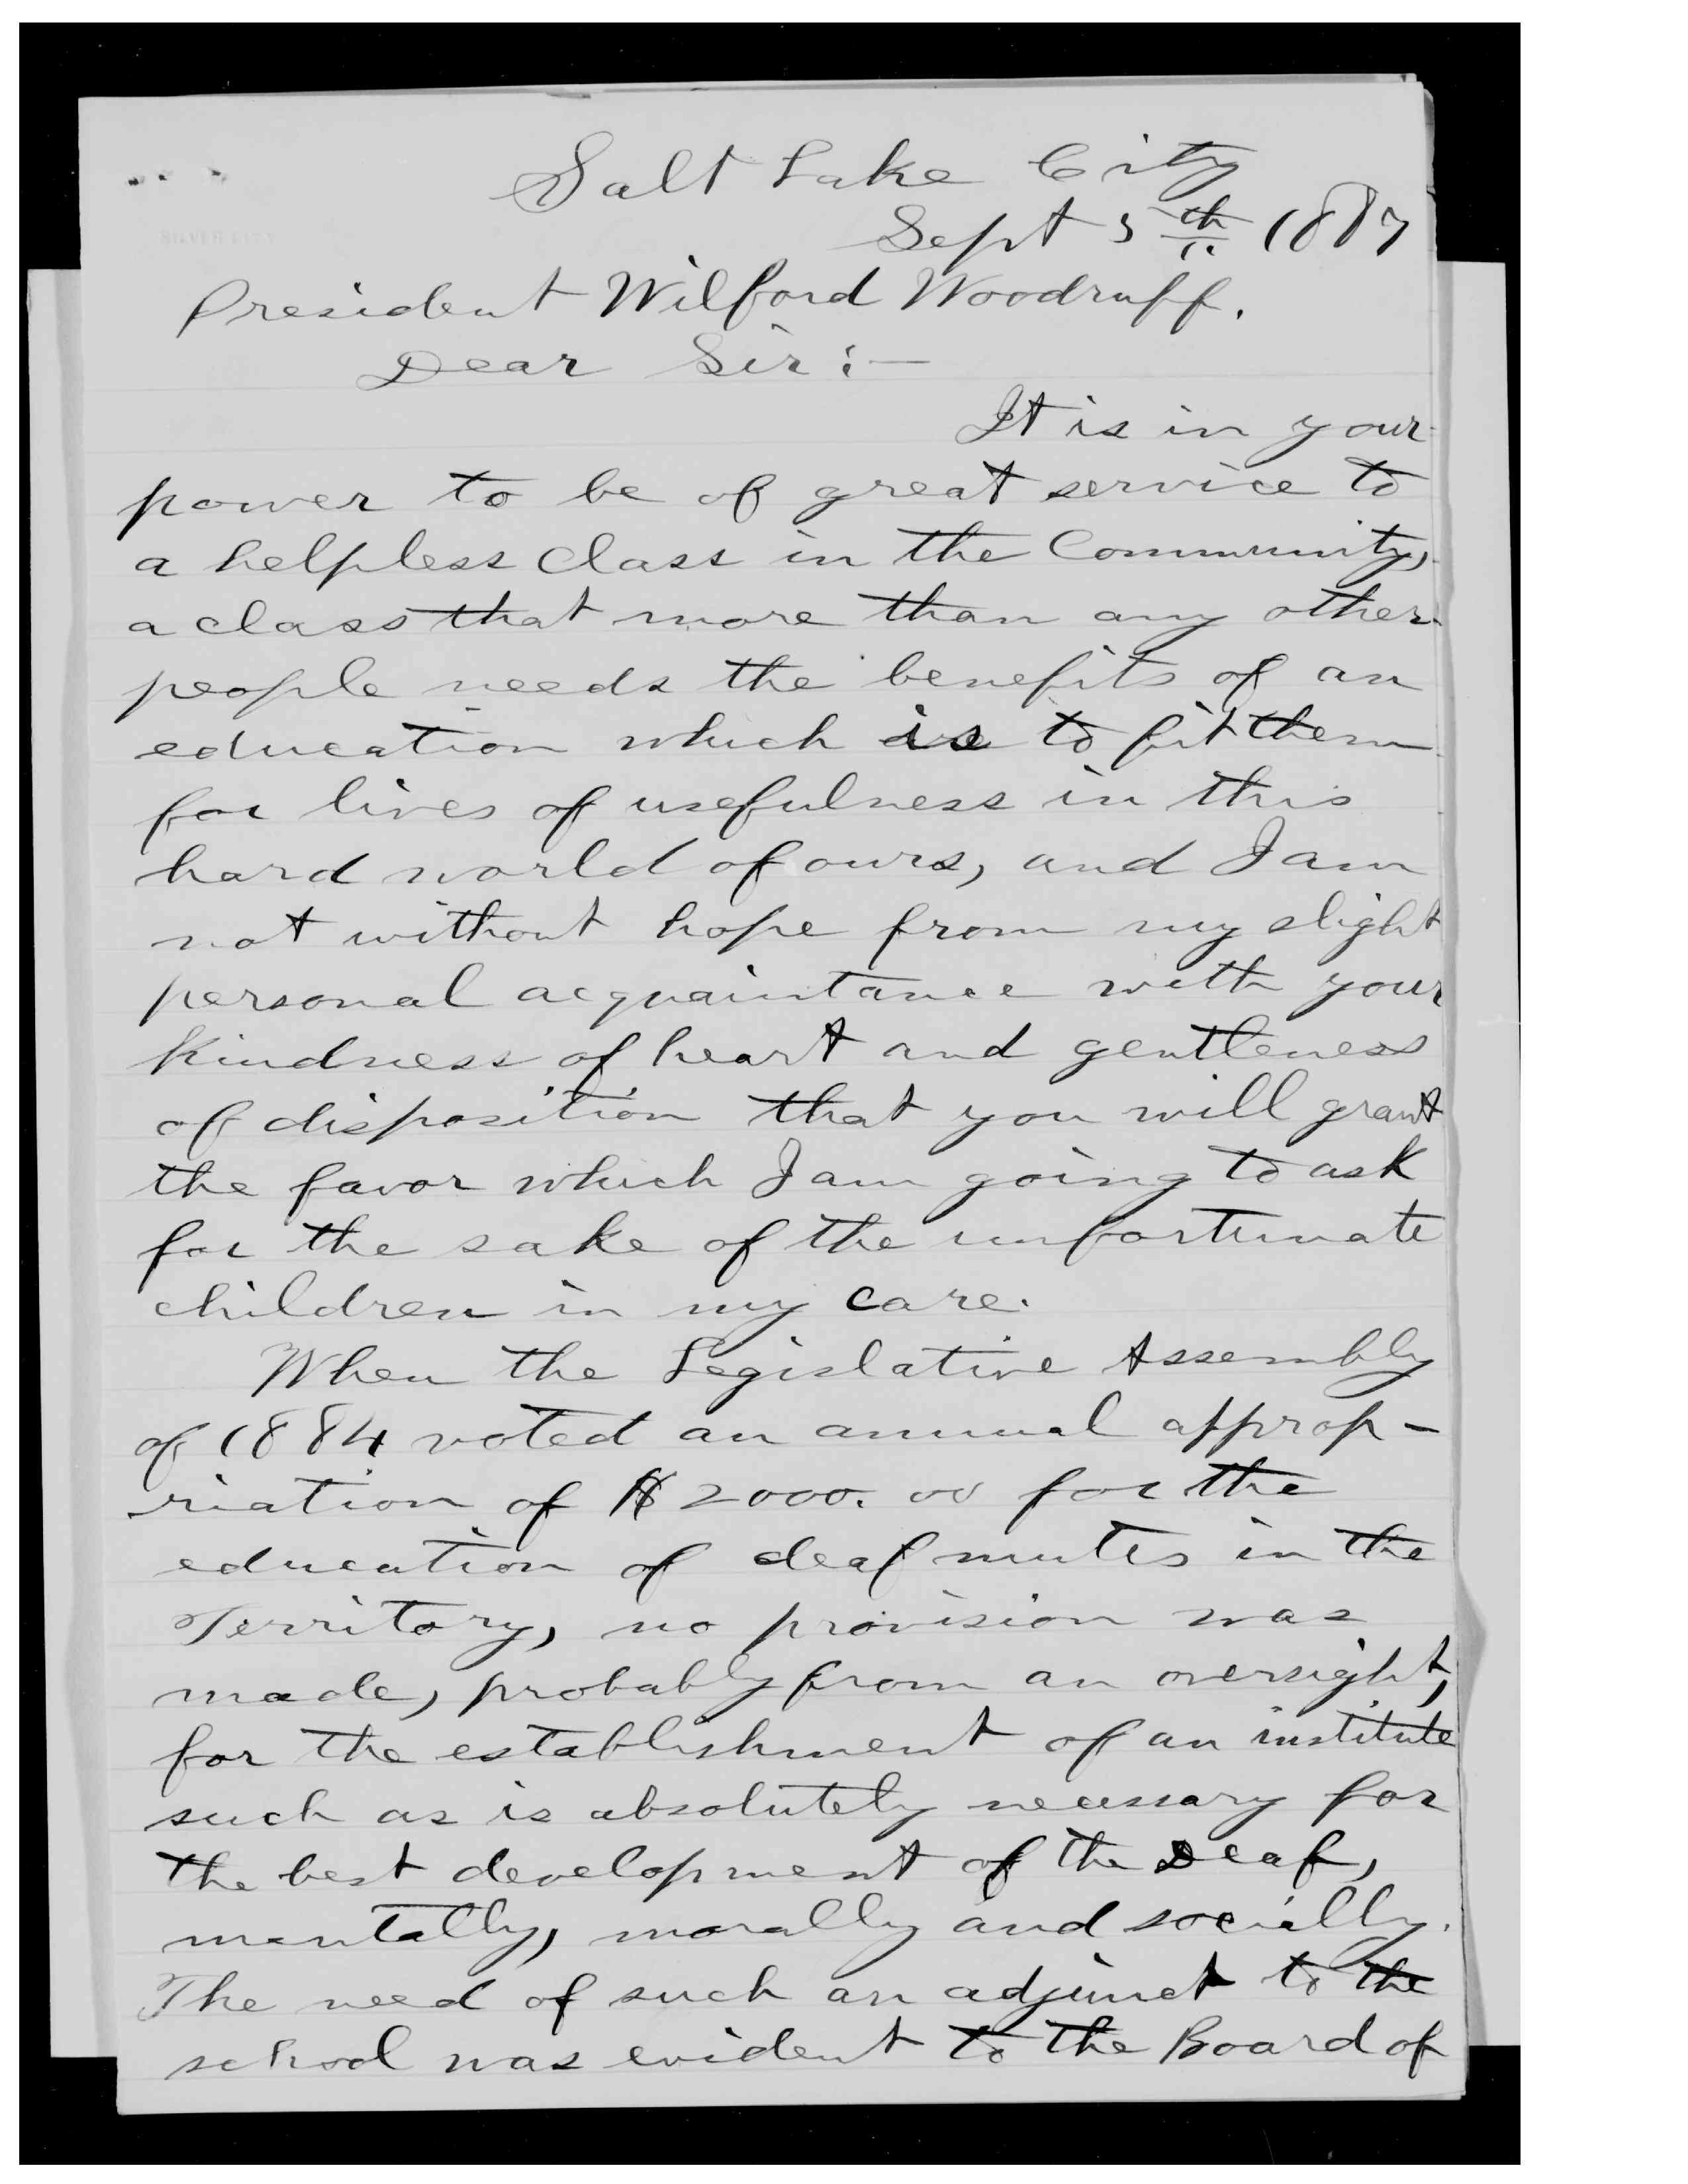 Salt Lake City
Sept 5th 1887
President Wilford Woodruff.
Dear Sir:—
It is in your
power to be of great service to
a helpless class in the Community,
a class that more than any other
people needs the benefits of an
education which is to fit them
for lives of usefulness in this
hard world of ours, and I am
not without hope from my slight
personal acquaintance with your
kindness of heart and gentleness
of disposition that you will grant
the favor which I am going to ask
for the sake of the unfortunate
children in my care.
When the Legislative Assembly
of 1884 voted an annual approp-
riation of $2000.00 for the
education of deaf mutes in the
Territory, no provision was
made, probably from an oversight,
for the establishment of an institute
such as is absolutely necessary for
the best development of the Deaf,
mentally, morally and socially.
The need of such an adjunct to the
school was evident to the Board of